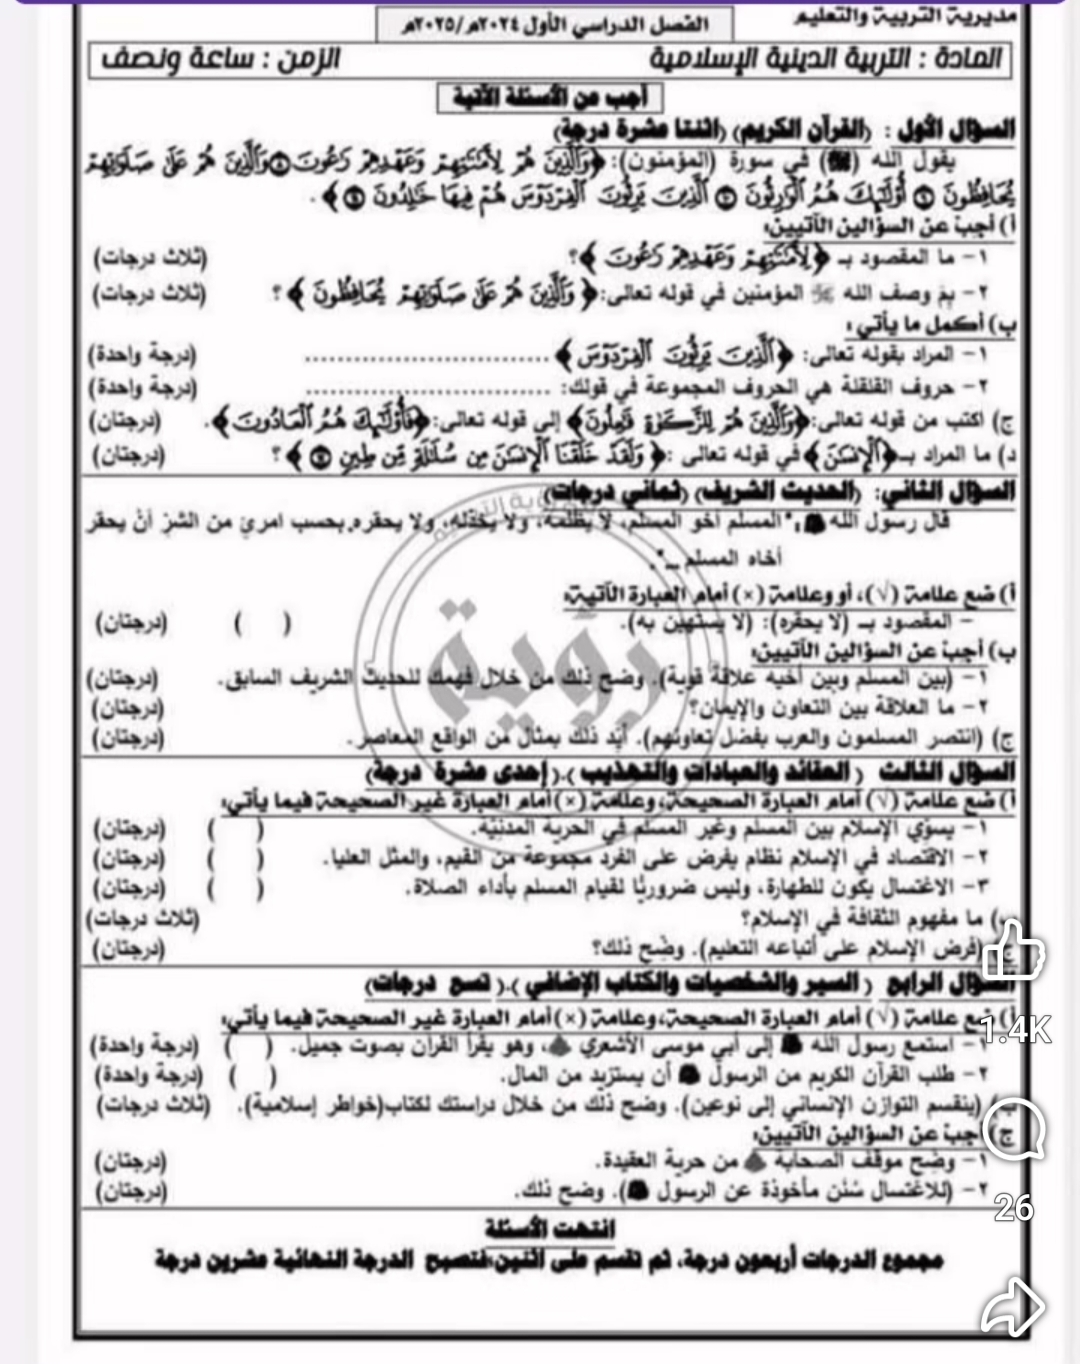 مديرية التربية والتعليم
الفصل الدراسي الأول ٢٠٢٤م/٢٠٢٥م
المادة : التربية الدينية الإسلامية الزمن : ساعة ونصف
أجب عن الأسئلة الآتية
السؤال الأول : (القرآن الكريم) (اثنتا عشرة درجة)
يقول الله (ﷻ) في سورة (المؤمنون): ﴿وَٱلَّذِينَ هُمْ لِأَمَٰنَٰتِهِمْ وَعَهْدِهِمْ رَٰعُونَ ۝ وَٱلَّذِينَ هُمْ عَلَىٰ صَلَوَٰتِهِمْ
يُحَافِظُونَ ۝ أُو۟لَٰٓئِكَ هُمُ ٱلْوَٰرِثُونَ ۝ ٱلَّذِينَ يَرِثُونَ ٱلْفِرْدَوْسَ هُمْ فِيهَا خَٰلِدُونَ ۝﴾.
أ) أجب عن السؤالين الآتيين:
١- ما المقصود بـ ﴿لِأَمَٰنَٰتِهِمْ وَعَهْدِهِمْ رَٰعُونَ﴾؟ (ثلاث درجات)
٢- بم وصف الله ﷻ المؤمنين في قوله تعالى: ﴿وَٱلَّذِينَ هُمْ عَلَىٰ صَلَوَٰتِهِمْ يُحَافِظُونَ﴾؟ (ثلاث درجات)
ب) أكمل ما يأتي:
١- المراد بقوله تعالى: ﴿ٱلَّذِينَ يَرِثُونَ ٱلْفِرْدَوْسَ﴾ ............................ (درجة واحدة)
٢- حروف القلقلة هي الحروف المجموعة في قولك: ............................ (درجة واحدة)
ج) اكتب من قوله تعالى: ﴿وَٱلَّذِينَ هُمْ لِلزَّكَوٰةِ فَٰعِلُونَ﴾ إلى قوله تعالى: ﴿فَأُو۟لَٰٓئِكَ هُمُ ٱلْعَادُونَ﴾. (درجتان)
د) ما المراد بـ ﴿ٱلْإِنسَٰنَ﴾ في قوله تعالى : ﴿وَلَقَدْ خَلَقْنَا ٱلْإِنسَٰنَ مِن سُلَٰلَةٍ مِّن طِينٍ ۝﴾؟ (درجتان)
السؤال الثاني: (الحديث الشريف) (ثماني درجات)
قال رسول الله ﷺ: "المسلم أخو المسلم، لا يظلمه، ولا يخذله، ولا يحقره، بحسب امرئ من الشر أنْ يحقر
أخاه المسلم ...".
أ) ضع علامة (√)، أو وعلامة (×) أمام العبارة الآتية:
- المقصود بـ (لا يحقره): (لا يستهين به). ( ) (درجتان)
ب) أجب عن السؤالين الآتيين:
١- (بين المسلم وبين أخيه علاقة قوية). وضح ذلك من خلال فهمك للحديث الشريف السابق. (درجتان)
٢- ما العلاقة بين التعاون والإيمان؟ (درجتان)
ج) (انتصر المسلمون والعرب بفضل تعاونهم). أيّد ذلك بمثال من الواقع المعاصر. (درجتان)
السؤال الثالث ( العقائد والعبادات والتهذيب ).( إحدى عشرة درجة)
أ) ضع علامة (√) أمام العبارة الصحيحة، وعلامة (×) أمام العبارة غير الصحيحة فيما يأتي:
١- يسوّي الإسلام بين المسلم وغير المسلم في الحرية المدنيّة. ( ) (درجتان)
٢- الاقتصاد في الإسلام نظام يفرض على الفرد مجموعة من القيم، والمثل العليا. ( ) (درجتان)
٣- الاغتسال يكون للطهارة، وليس ضروريًّا لقيام المسلم بأداء الصلاة. ( ) (درجتان)
ب) ما مفهوم الثقافة في الإسلام؟ (ثلاث درجات)
ج) (فرض الإسلام على أتباعه التعليم). وضّح ذلك؟ (درجتان)
السؤال الرابع ( السير والشخصيات والكتاب الإضافي ).( تسع درجات)
أ) ضع علامة (√) أمام العبارة الصحيحة، وعلامة (×) أمام العبارة غير الصحيحة فيما يأتي:
١- استمع رسول الله ﷺ إلى أبي موسى الأشعري، وهو يقرأ القرآن بصوت جميل. ( ) (درجة واحدة)
٢- طلب القرآن الكريم من الرسول ﷺ أن يستزيد من المال. ( ) (درجة واحدة)
ب) (ينقسم التوازن الإنساني إلى نوعين). وضح ذلك من خلال دراستك لكتاب(خواطر إسلامية). (ثلاث درجات)
ج) أجب عن السؤالين الآتيين:
١- وضّح موقف الصحابة من حرية العقيدة. (درجتان)
٢- (للاغتسال سُنَن مأخوذة عن الرسول ﷺ). وضح ذلك. (درجتان)
انتهت الأسئلة
مجموع الدرجات أربعون درجة، ثم تقسم على اثنين؛فتصبح الدرجة النهائية عشرين درجة
رؤية
1.4K
26